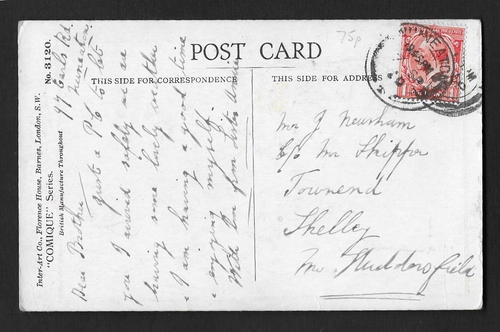 75p
POST CARD
THIS SIDE FOR CORRESPONDENCE
THIS SIDE FOR ADDRESS
No. 3120.
Inter-Art Co., Florence House, Barnes, London, S.W.
"COMIQUE" Series.
British Manufacture Throughout
97 Earls Rd
Nuneaton
Dear Brother
Just a P.C. to let
you I arrived safely we are
having some lovely weather
I am having a good time
& enjoying myself.
With love from Sister Annie
Mr J Newsham
C/o Mr Shipper
Townend
Shelley
Nr Huddersfield